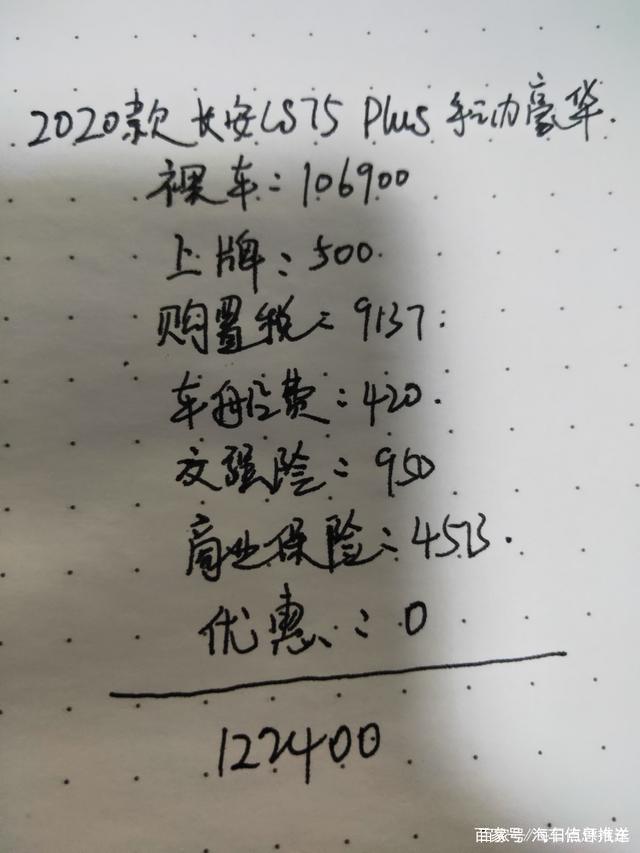 2020款长安CS75 Plus 手动豪华.
裸车：106900
上牌：500.
购置税：9137.
车船位费：420.
交强险：950
商业保险：4513.
优惠：0
122400
百家号／海车信息推送